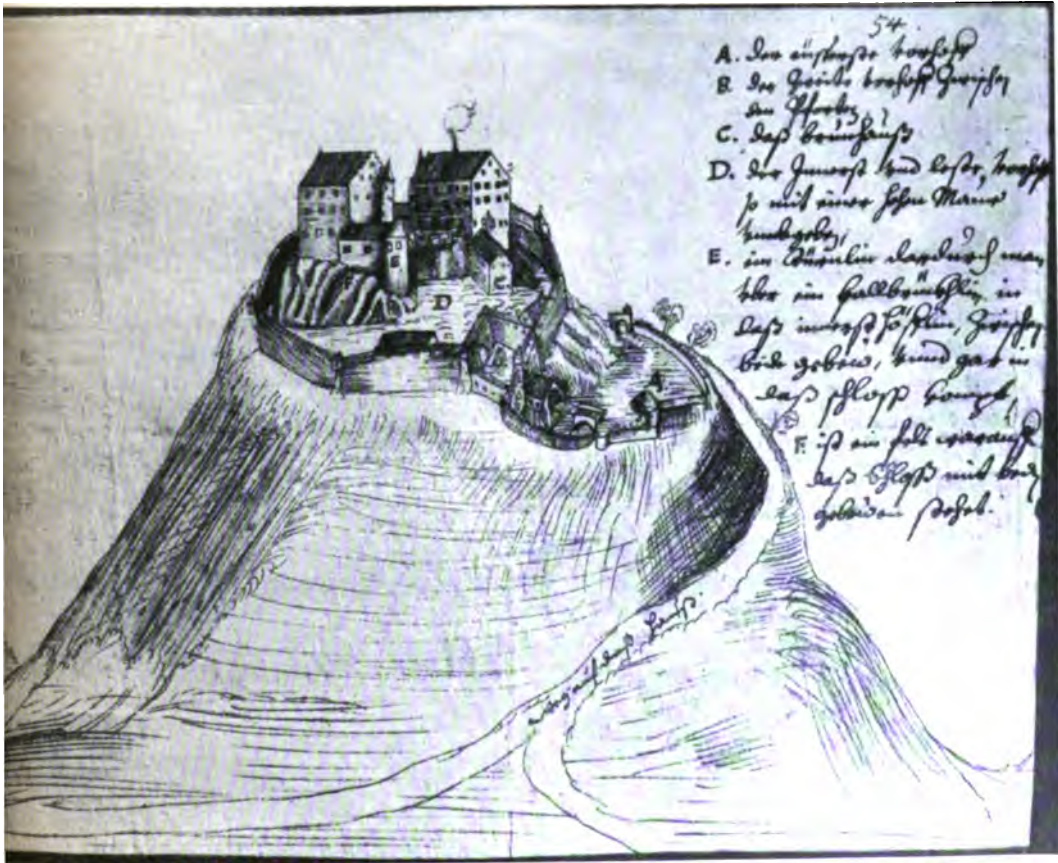 54.
A. der eüsserste vorhoff
B. der Zweite vorhoff Zwischen
den Pforten,
C. daß brunhauß
D. der Innerst vnd letste, vorhoff
so mit einer hohen Maur
vmbgeben,
E. ein thürnlin dardurch man
vber ein fallbrückhlin in
daß innerst höfflin, Zwischen
beide gebew, vnnd gar in
daß schloss kompt,
F. ist ein felß warauff
daß Schloß mit beiden
gebeüwen stehet.
F
D
C
A
weg auf daß hauß.